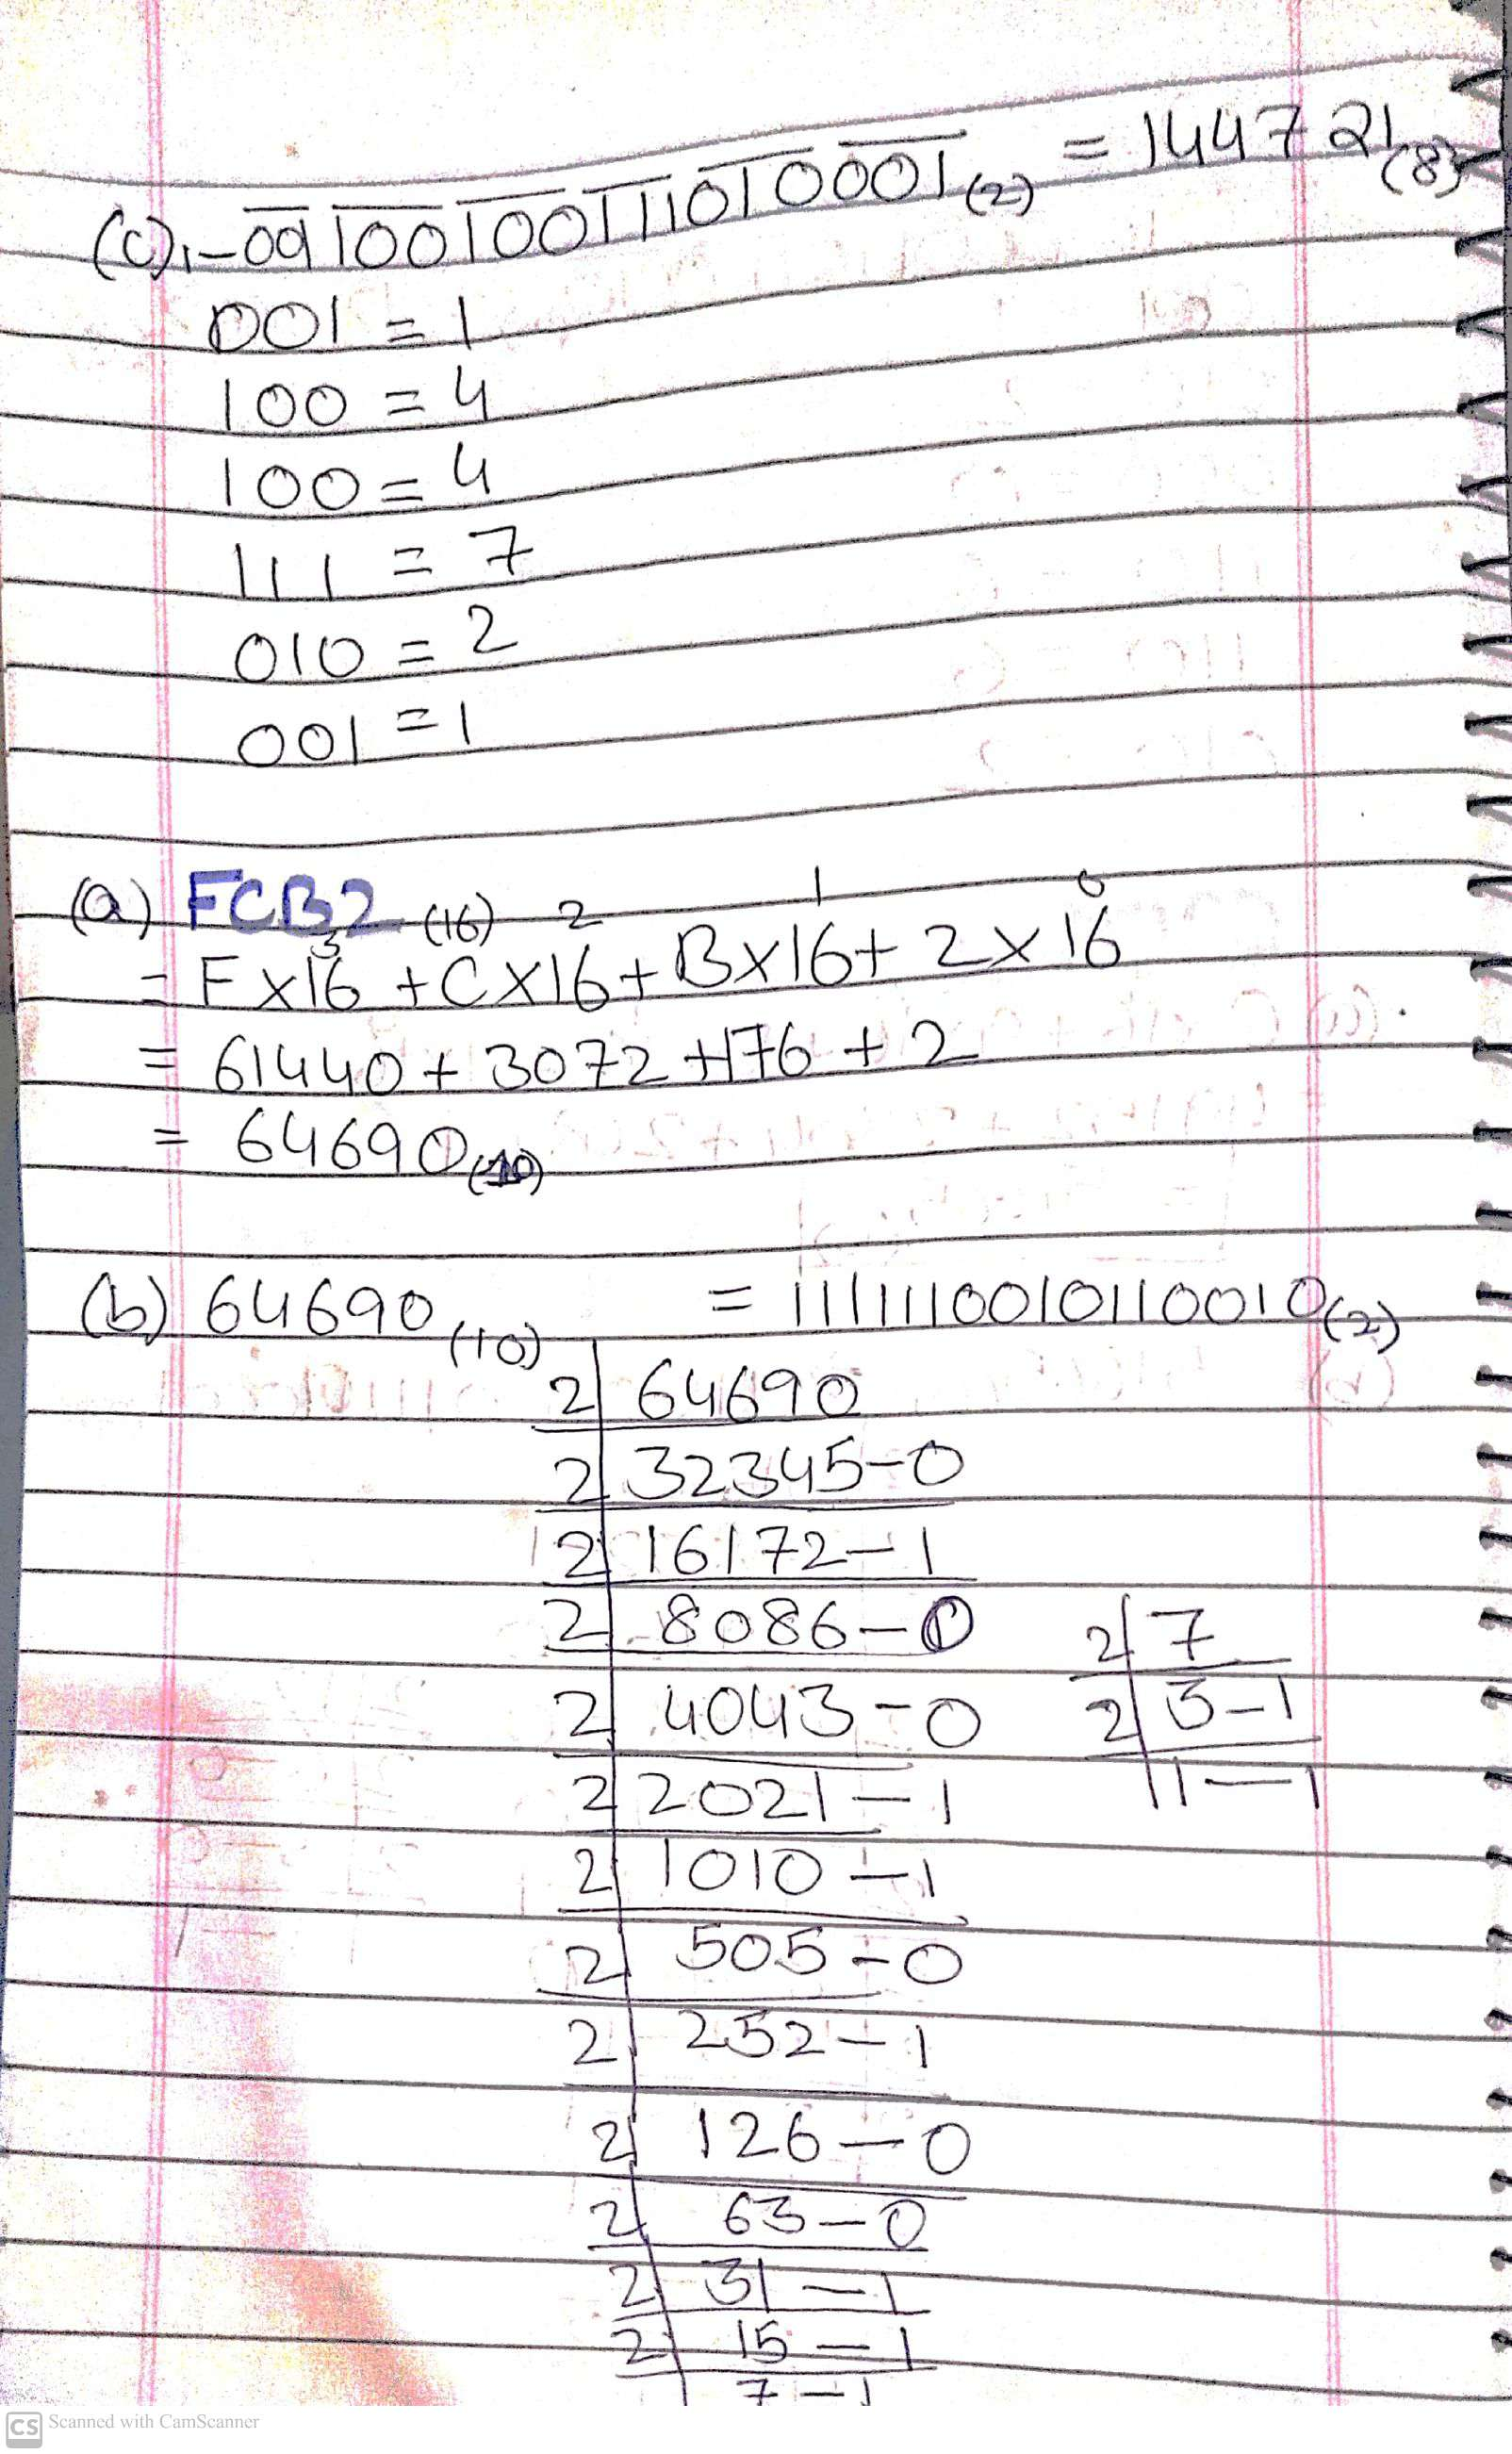 (c) 001100100111010001(2) = 144721(8)
001 = 1
100 = 4
100 = 4
111 = 7
010 = 2
001 = 1
(a) FCB2 (16)
= F×16³ + C×16² + B×16¹ + 2×16⁰
= 61440 + 3072 + 176 + 2
= 64690(10)
(b) 64690(10) = 1111110010110010(2)
2 64690
2 32345-0
2 16172-1
2 8086-0
2 4043-0
2 2021-1
2 1010-1
2 505-0
2 252-1
2 126-0
2 63-0
2 31-1
2 15-1
7-1
2 7
2 3-1
1-1
CS Scanned with CamScanner